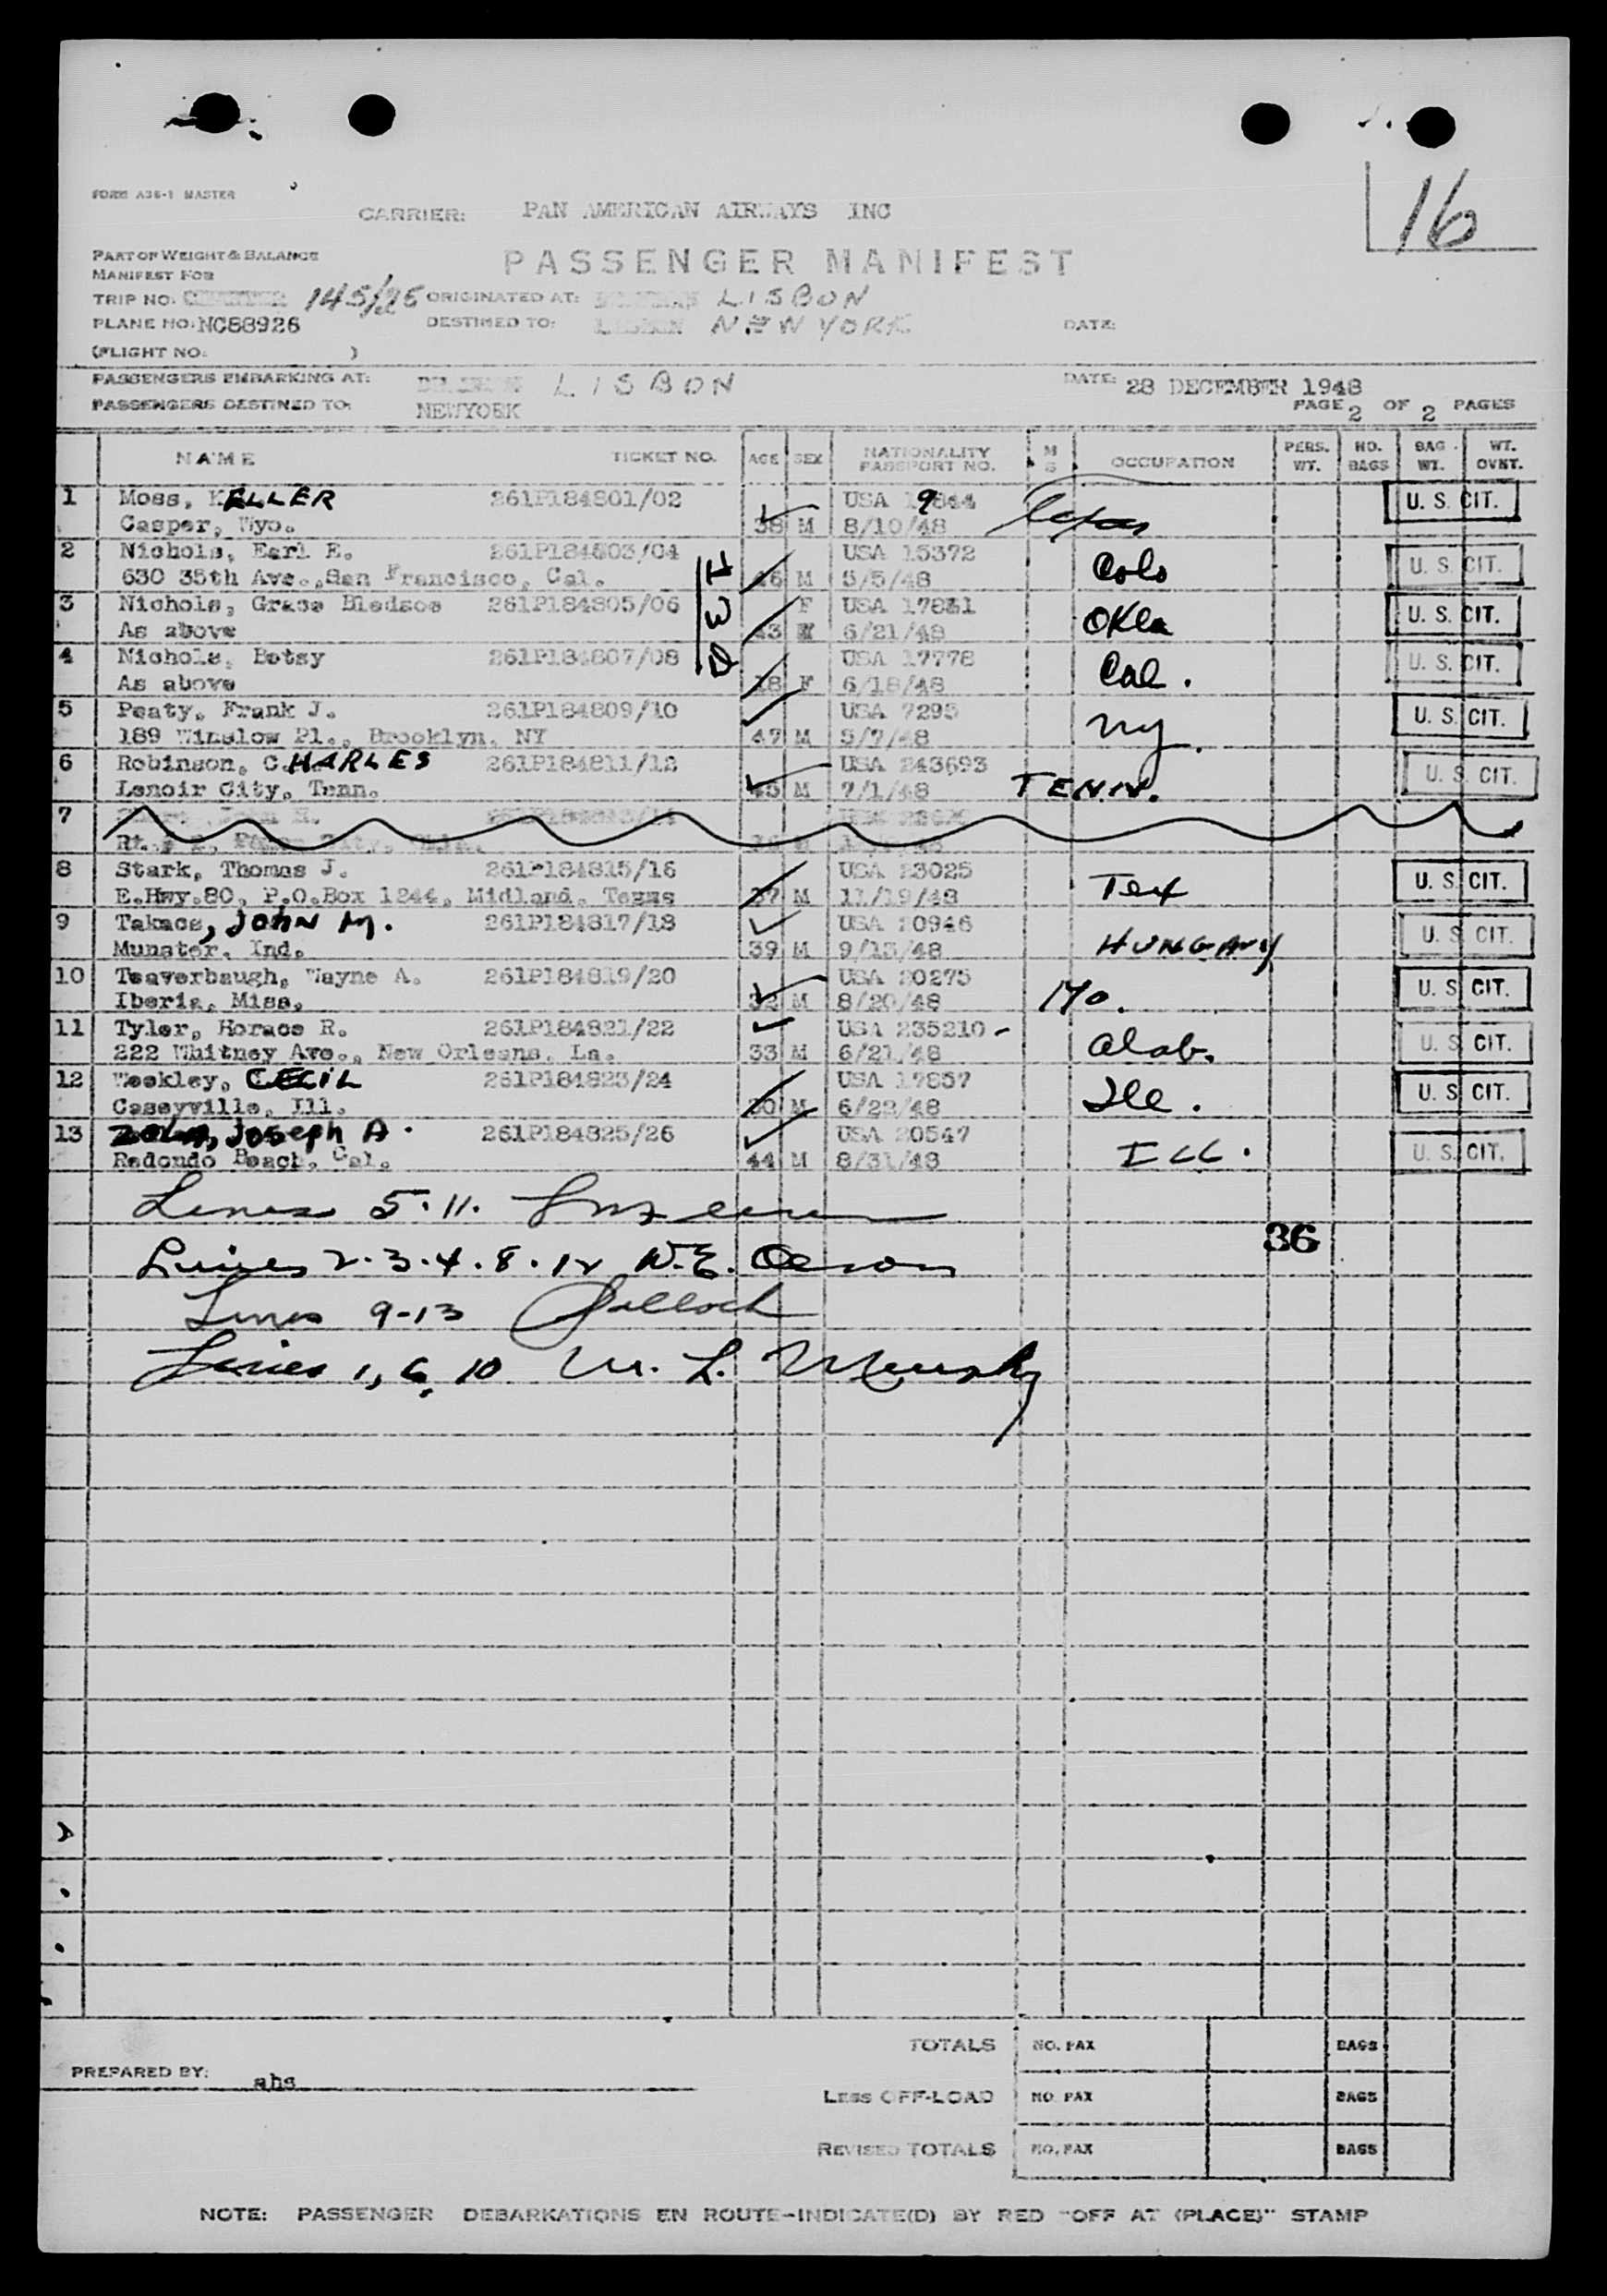 16
FORM A36-1 MASTER
CARRIER: PAN AMERICAN AIRWAYS INC
PART OF WEIGHT & BALANCE
MANIFEST FOR
PASSENGER MANIFEST
TRIP NO. 145/26 ORIGINATED AT: LISBON
PLANE NO. NC88926 DESTINED TO: NEW YORK DATE:
(FLIGHT NO. )
PASSENGERS EMBARKING AT: LISBON DATE: 28 DECEMBER 1948
PASSENGERS DESTINED TO: NEWYORK PAGE 2 OF 2 PAGES
NAME TICKET NO. AGE SEX NATIONALITY PASSPORT NO. M S OCCUPATION PERS. WT. NO. BAGS BAG WT. WT. OVNT.
1 Moss, KELLER 261P184801/02 USA 19844 U. S. CIT.
Casper, Wyo. 38 M 8/10/48 Texas
2 Nichols, Earl E. 261P184803/04 USA 15372 Colo U. S. CIT.
630 35th Ave., San Francisco, Cal. 46 M 5/5/48
3 Nichols, Grace Bledsoe 261P184805/06 F USA 17831 Okla U. S. CIT.
As above 43 6/21/48
4 Nichols, Betsy 261P184807/08 USA 17778 Cal. U. S. CIT.
As above 18 F 6/18/48
5 Peaty, Frank J. 261P184809/10 USA 7295 NY. U. S. CIT.
189 Winslow Pl., Brooklyn, NY 47 M 5/7/48
6 Robinson, CHARLES 261P184811/12 USA 243693 U. S. CIT.
Lenoir City, Tenn. 45 M 7/1/48 TENN.
7
8 Stark, Thomas J. 261P184815/16 USA 23025 U. S. CIT.
E.Hwy.80, P.O.Box 1244, Midland, Texas 37 M 11/19/48 Tex
9 Takacs, JOHN M. 261P184817/18 USA 20946 U. S. CIT.
Munster, Ind. 39 M 9/13/48 HUNGARY
10 Teaverbaugh, Wayne A. 261P184819/20 USA 20275 U. S. CIT.
Iberia, Miss. 32 M 8/20/48 Mo.
11 Tyler, Horace R. 261P184821/22 USA 235210 - U. S. CIT.
222 Whitney Ave., New Orleans, La. 33 M 6/21/48 Alab.
12 Weekley, CECIL 261P184823/24 USA 17857 Ill. U. S. CIT.
Caseyville, Ill. 30 M 6/22/48
13 Joseph A. 261P184825/26 USA 20547 ILL. U. S. CIT.
Redondo Beach, Cal. 44 M 8/31/48
Lines 5.11.
Lines 2.3.4.8.12 W.E. Olson
36
Lines 9-13
Lines 1, 6, 10 M. L. Murphy
TOTALS NO. PAX BAGS
PREPARED BY: ahs
Less OFF-LOAD NO PAX BAGS
REVISED TOTALS NO. PAX BAGS
NOTE: PASSENGER DEBARKATIONS EN ROUTE-INDICATE(D) BY RED "OFF AT (PLACE)" STAMP